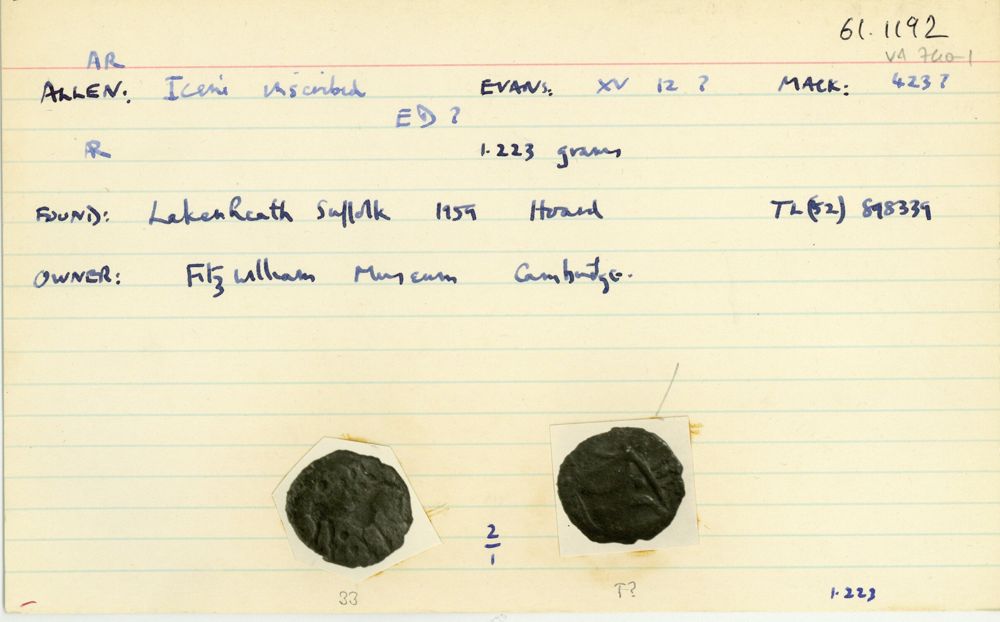 61.1192
VA 740-1
AR
ALLEN: Iceni inscribed EVANS: XV 12 ? MACK: 423?
ED ?
AR 1.223 grams
FOUND: Lakenheath Suffolk 1959 Hoard TL(52) 898339
OWNER: Fitzwilliam Museum Cambridge.
2
1
33 T? 1.223